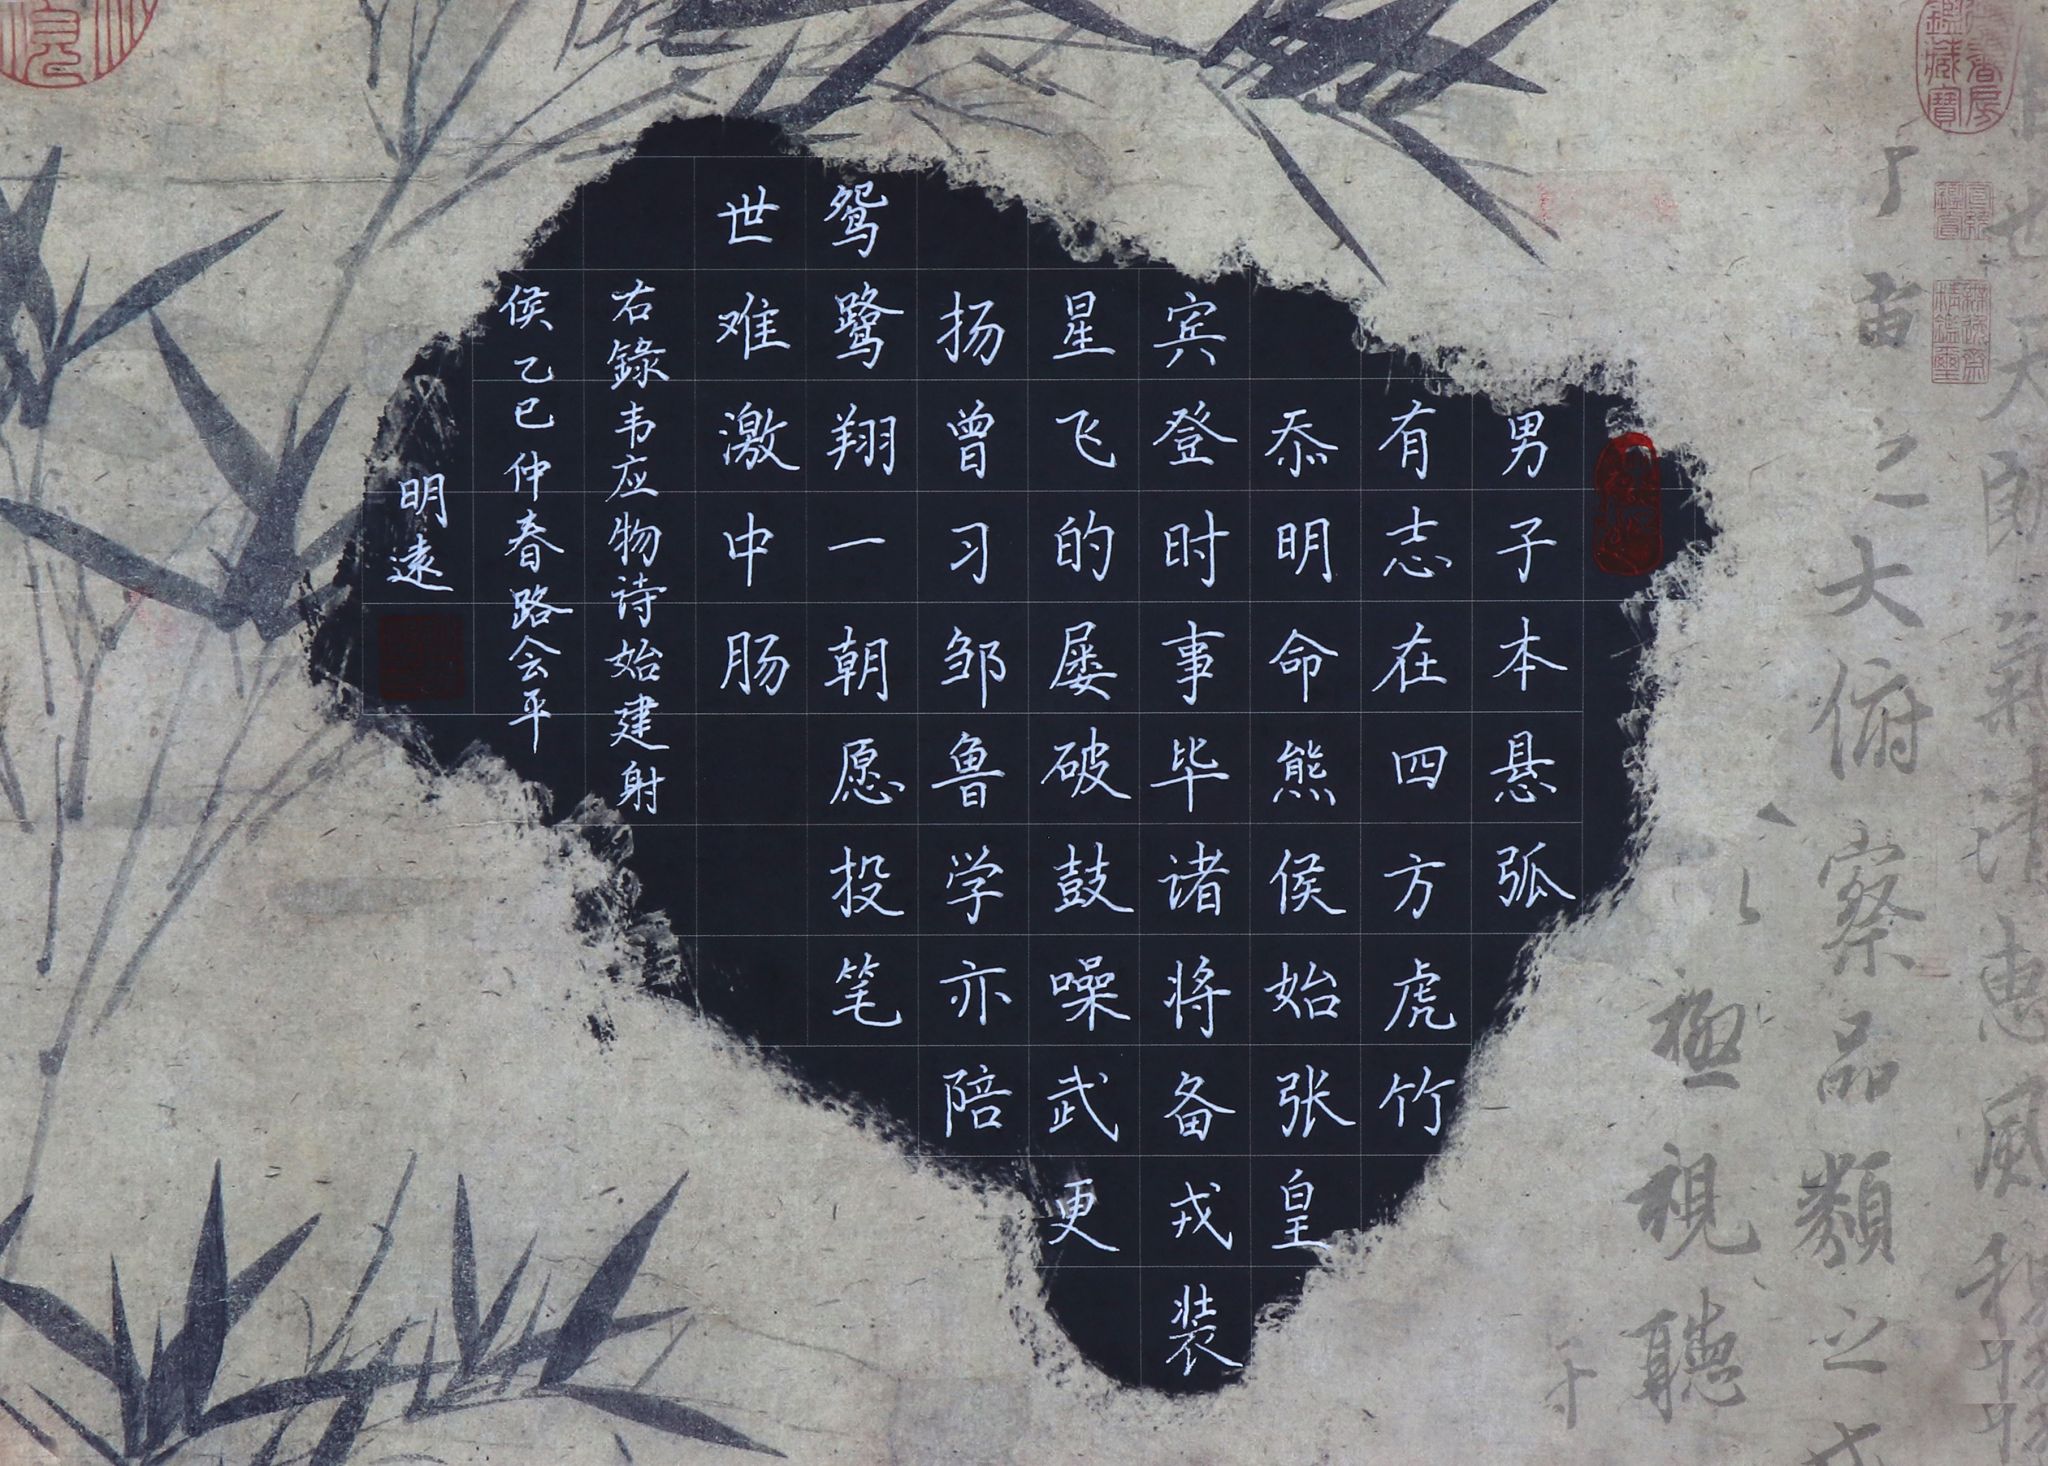 男子本悬弧
有志在四方虎竹
忝明命熊侯始张皇
宾登时事毕诸将备戎装
星飞的屡破鼓噪武更
扬曾习邹鲁学亦陪
鸳鹭翔一朝愿投笔
世难激中肠
右錄韦应物诗始建射
侯乙巳仲春路会平
明遠
之大俯察品類之
極視聽
天朗氣清惠風和
鑑藏寶